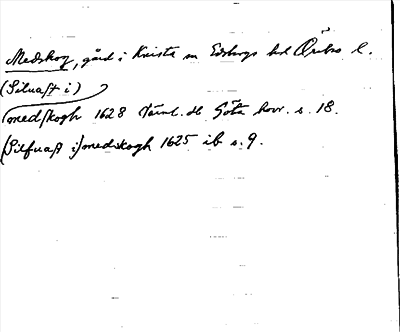 Medskog, gård i Knista sn Edsbergs hd Örebro l.
(Siluast i)
medskogh 1628 Tåml. db Göta hovr. s. 18.
(Silfuast i) medskogh 1625 ib s. 9.